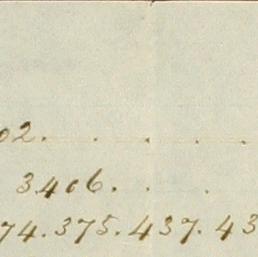 02. . . . .
3406. . .
74. 375. 437. 43